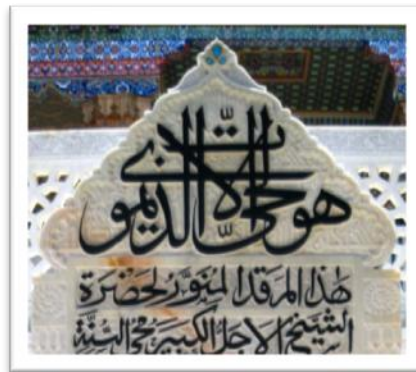 هو الحى الذى لا يموت
هذا المرقد المنور لحضرة
الشيخ الاجل الكبير محى السنة